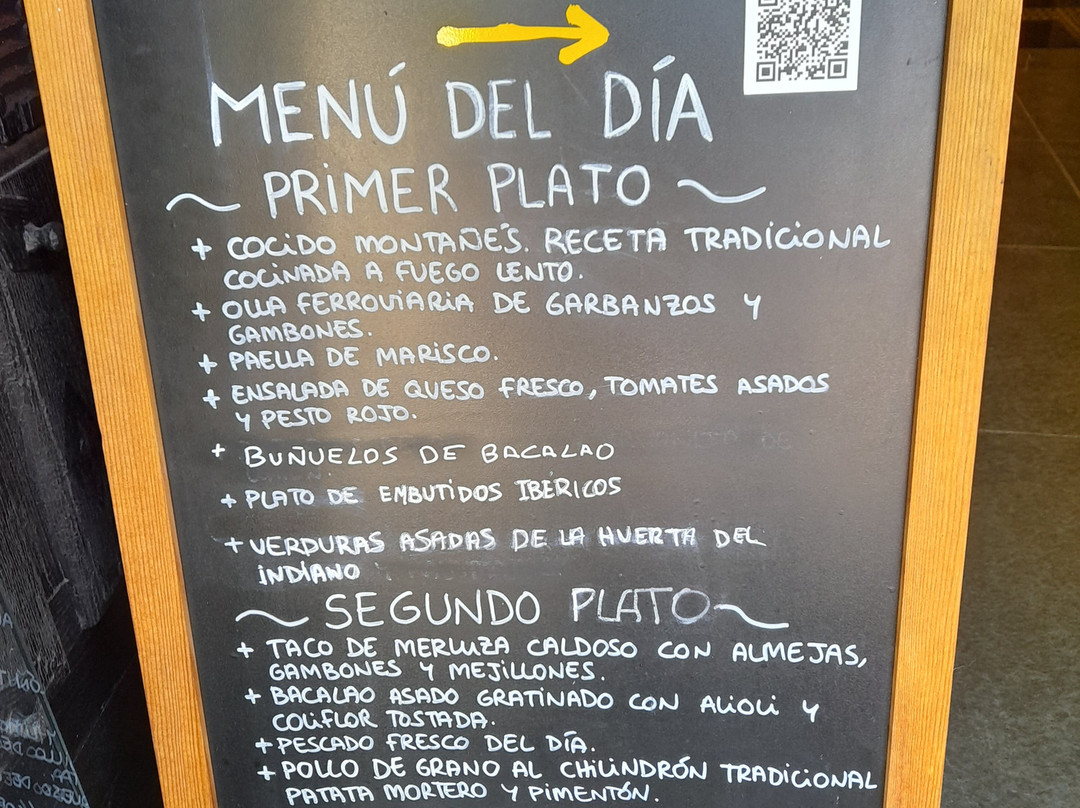 MENÚ DEL DÍA
PRIMER PLATO
+ COCIDO MONTAÑÉS. RECETA TRADICIONAL
COCINADA A FUEGO LENTO.
+ OLLA FERROVIARIA DE GARBANZOS Y
GAMBONES.
+ PAELLA DE MARISCO.
+ ENSALADA DE QUESO FRESCO, TOMATES ASADOS
Y PESTO ROJO.
+ BUÑUELOS DE BACALAO
+ PLATO DE EMBUTIDOS IBERICOS
+ VERDURAS ASADAS DE LA HUERTA DEL
INDIANO
SEGUNDO PLATO
+ TACO DE MERLUZA CALDOSO CON ALMEJAS,
GAMBONES Y MEJILLONES.
+ BACALAO ASADO GRATINADO CON ALIOLI Y
COLIFLOR TOSTADA.
+ PESCADO FRESCO DEL DÍA.
+ POLLO DE GRANO AL CHILINDRÓN TRADICIONAL
PATATA MORTERO Y PIMENTÓN.